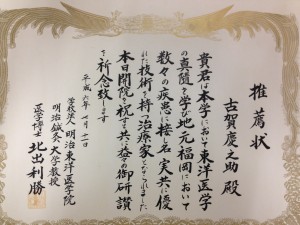 推薦状
古賀慶之助 殿
貴君は本学において東洋医学
の真髄を学び地元福岡において
数々の疾患に接し名実共に優
れた技術を持つ治療家となられました
本日開院を祝すと共に益々の御研讃
を祈念致します
平成六年七月十一日
学校法人 明治東洋医学院
明治鍼灸大学教授
医学博士 北出利勝